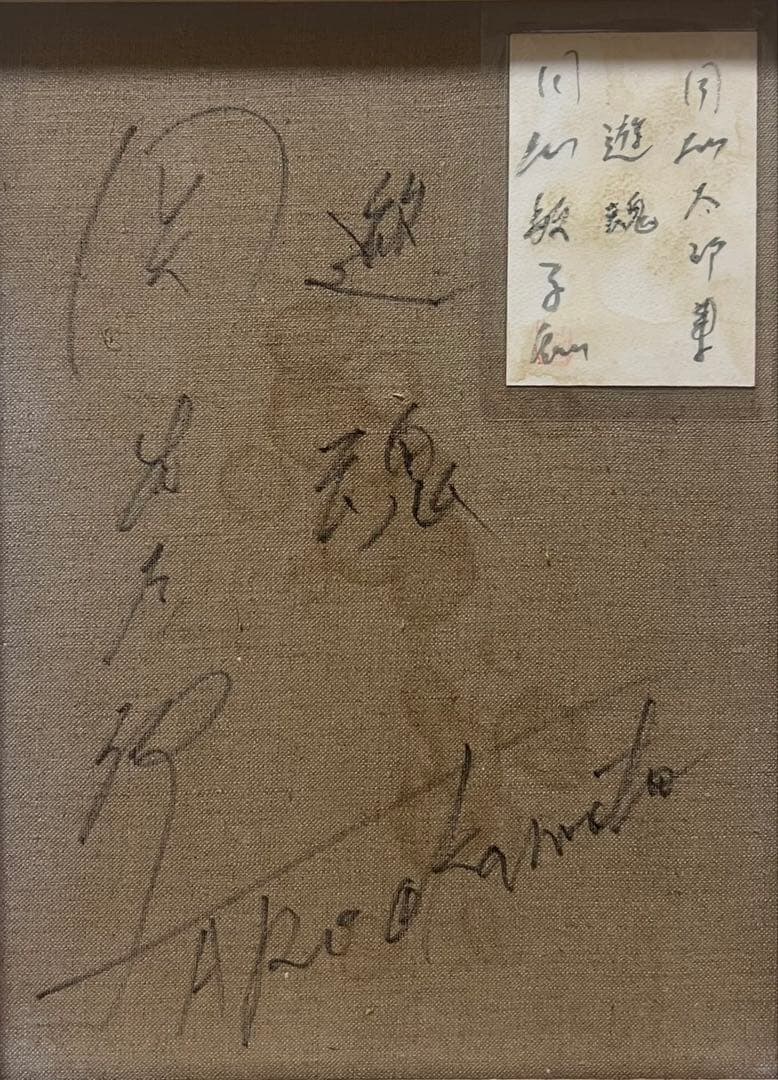 岡本太郎筆
遊魂
岡本敏子
遊魂
岡本太郎
TARO Okamoto